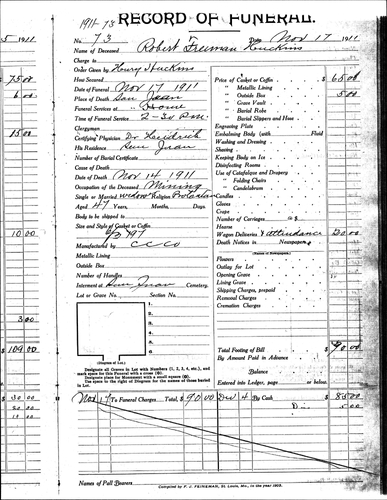 1911-73
RECORD OF FUNERAL.
No. 73 Date Nov 17 1911
Name of Deceased Robert Freeman Huckins
Charge to
Order Given by Henry Huckins
How Secured
Date of Funeral Nov 17 1911
Place of Death San Juan
Funeral Services at " Home
Time of Funeral Service 2-30 P.M.
Clergyman
Certifying Physician Dr
His Residence San Juan
Number of Burial Certificate
Cause of Death
Date of Death Nov 14 1911
Occupation of the Deceased Mining
Single or Married widow Religion Protestan
Aged 47 Years, Months, Days.
Body to be shipped to
Size and Style of Casket or Coffin
Manufactured by CCCo
Metallic Lining
Outside Box
Number of Handles
Interment at San Juan Cemetery.
Lot or Grave No. Section No.
1
2
3
4
5
6
(Diagram of Lot.)
Designate all Graves in Lot with Numbers (1, 2, 3, 4, etc.), and
mark space for this Funeral with a cross (⊗).
Designate place for Monument with a small square (⊡).
Use space to the right of Diagram for the names of those buried
in Lot.
Price of Casket or Coffin $ 65 00
" Metallic Lining
" Outside Box 5 00
" Grave Vault
" Burial Robe
" Burial Slippers and Hose
Engraving Plate
Embalming Body (with Fluid
Washing and Dressing
Shaving
Keeping Body on Ice
Disinfecting Rooms
Use of Catafalque and Drapery
" Folding Chairs
" Candelabrum
Candles
Gloves
Crape
Number of Carriages @ $
Hearse
Wagon Deliveries & attendance 20 00
Death Notices in Newspapers
(Names of Newspapers)
Flowers
Outlay for Lot
Opening Grave
Lining Grave
Shipping Charges, prepaid
Removal Charges
Cremation Charges
Total Footing of Bill $ 90 00
By Amount Paid in Advance
Balance
Entered into Ledger, page or below.
Nov 17 To Funeral Charges Total, $ 90 00 Dec 4 By Cash 85 00
Dis 5 00
Names of Pall Bearers
Compiled by F. J. FEINEMAN, St. Louis, Mo., in the year 1902.
5 1911
75 00
6 00
15 00
10 00
3 00
109 00
30 00
20 00